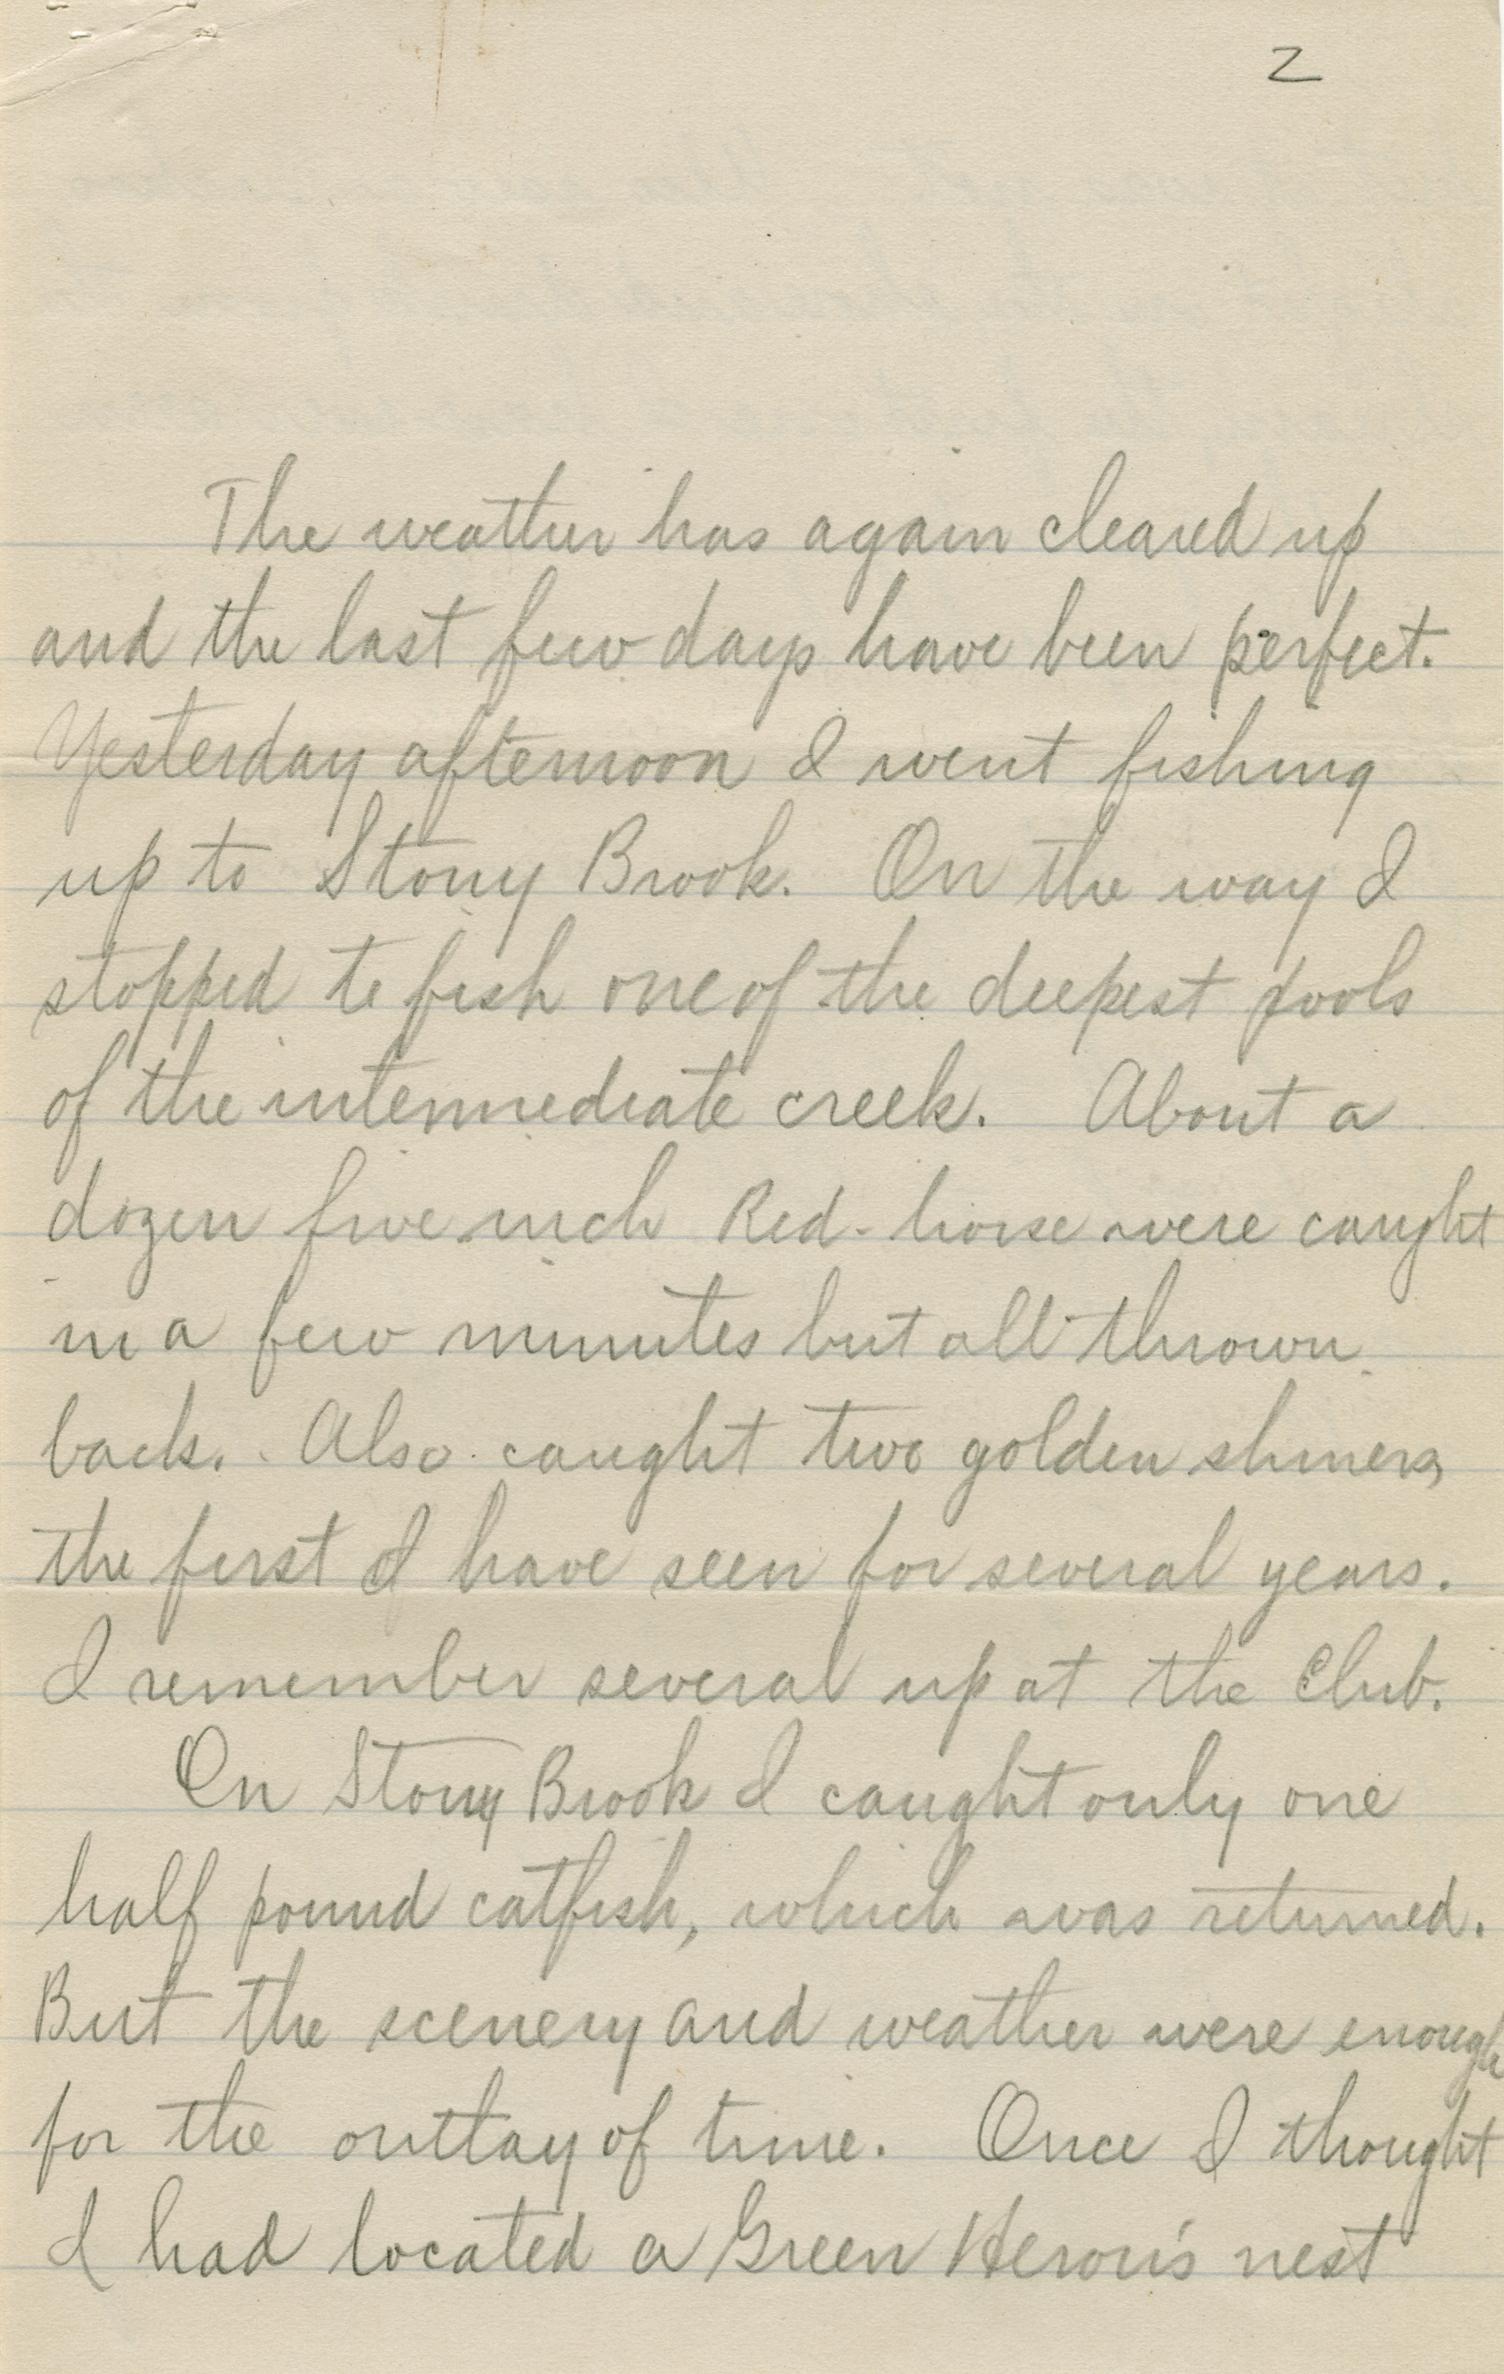 2
The weather has again cleared up
and the last few days have been perfect.
Yesterday afternoon I went fishing
up to Stony Brook. On the way I
stopped to fish one of the deepest pools
of the intermediate creek. About a
dozen five inch Red-horse were caught
in a few minutes but all thrown
back. Also caught two golden shiners,
the first I have seen for several years.
I remember several up at the Club.
On Stony Brook I caught only one
half pound catfish, which was returned.
But the scenery and weather were enough
for the outlay of time. Once I thought
I had located a Green Heron's nest